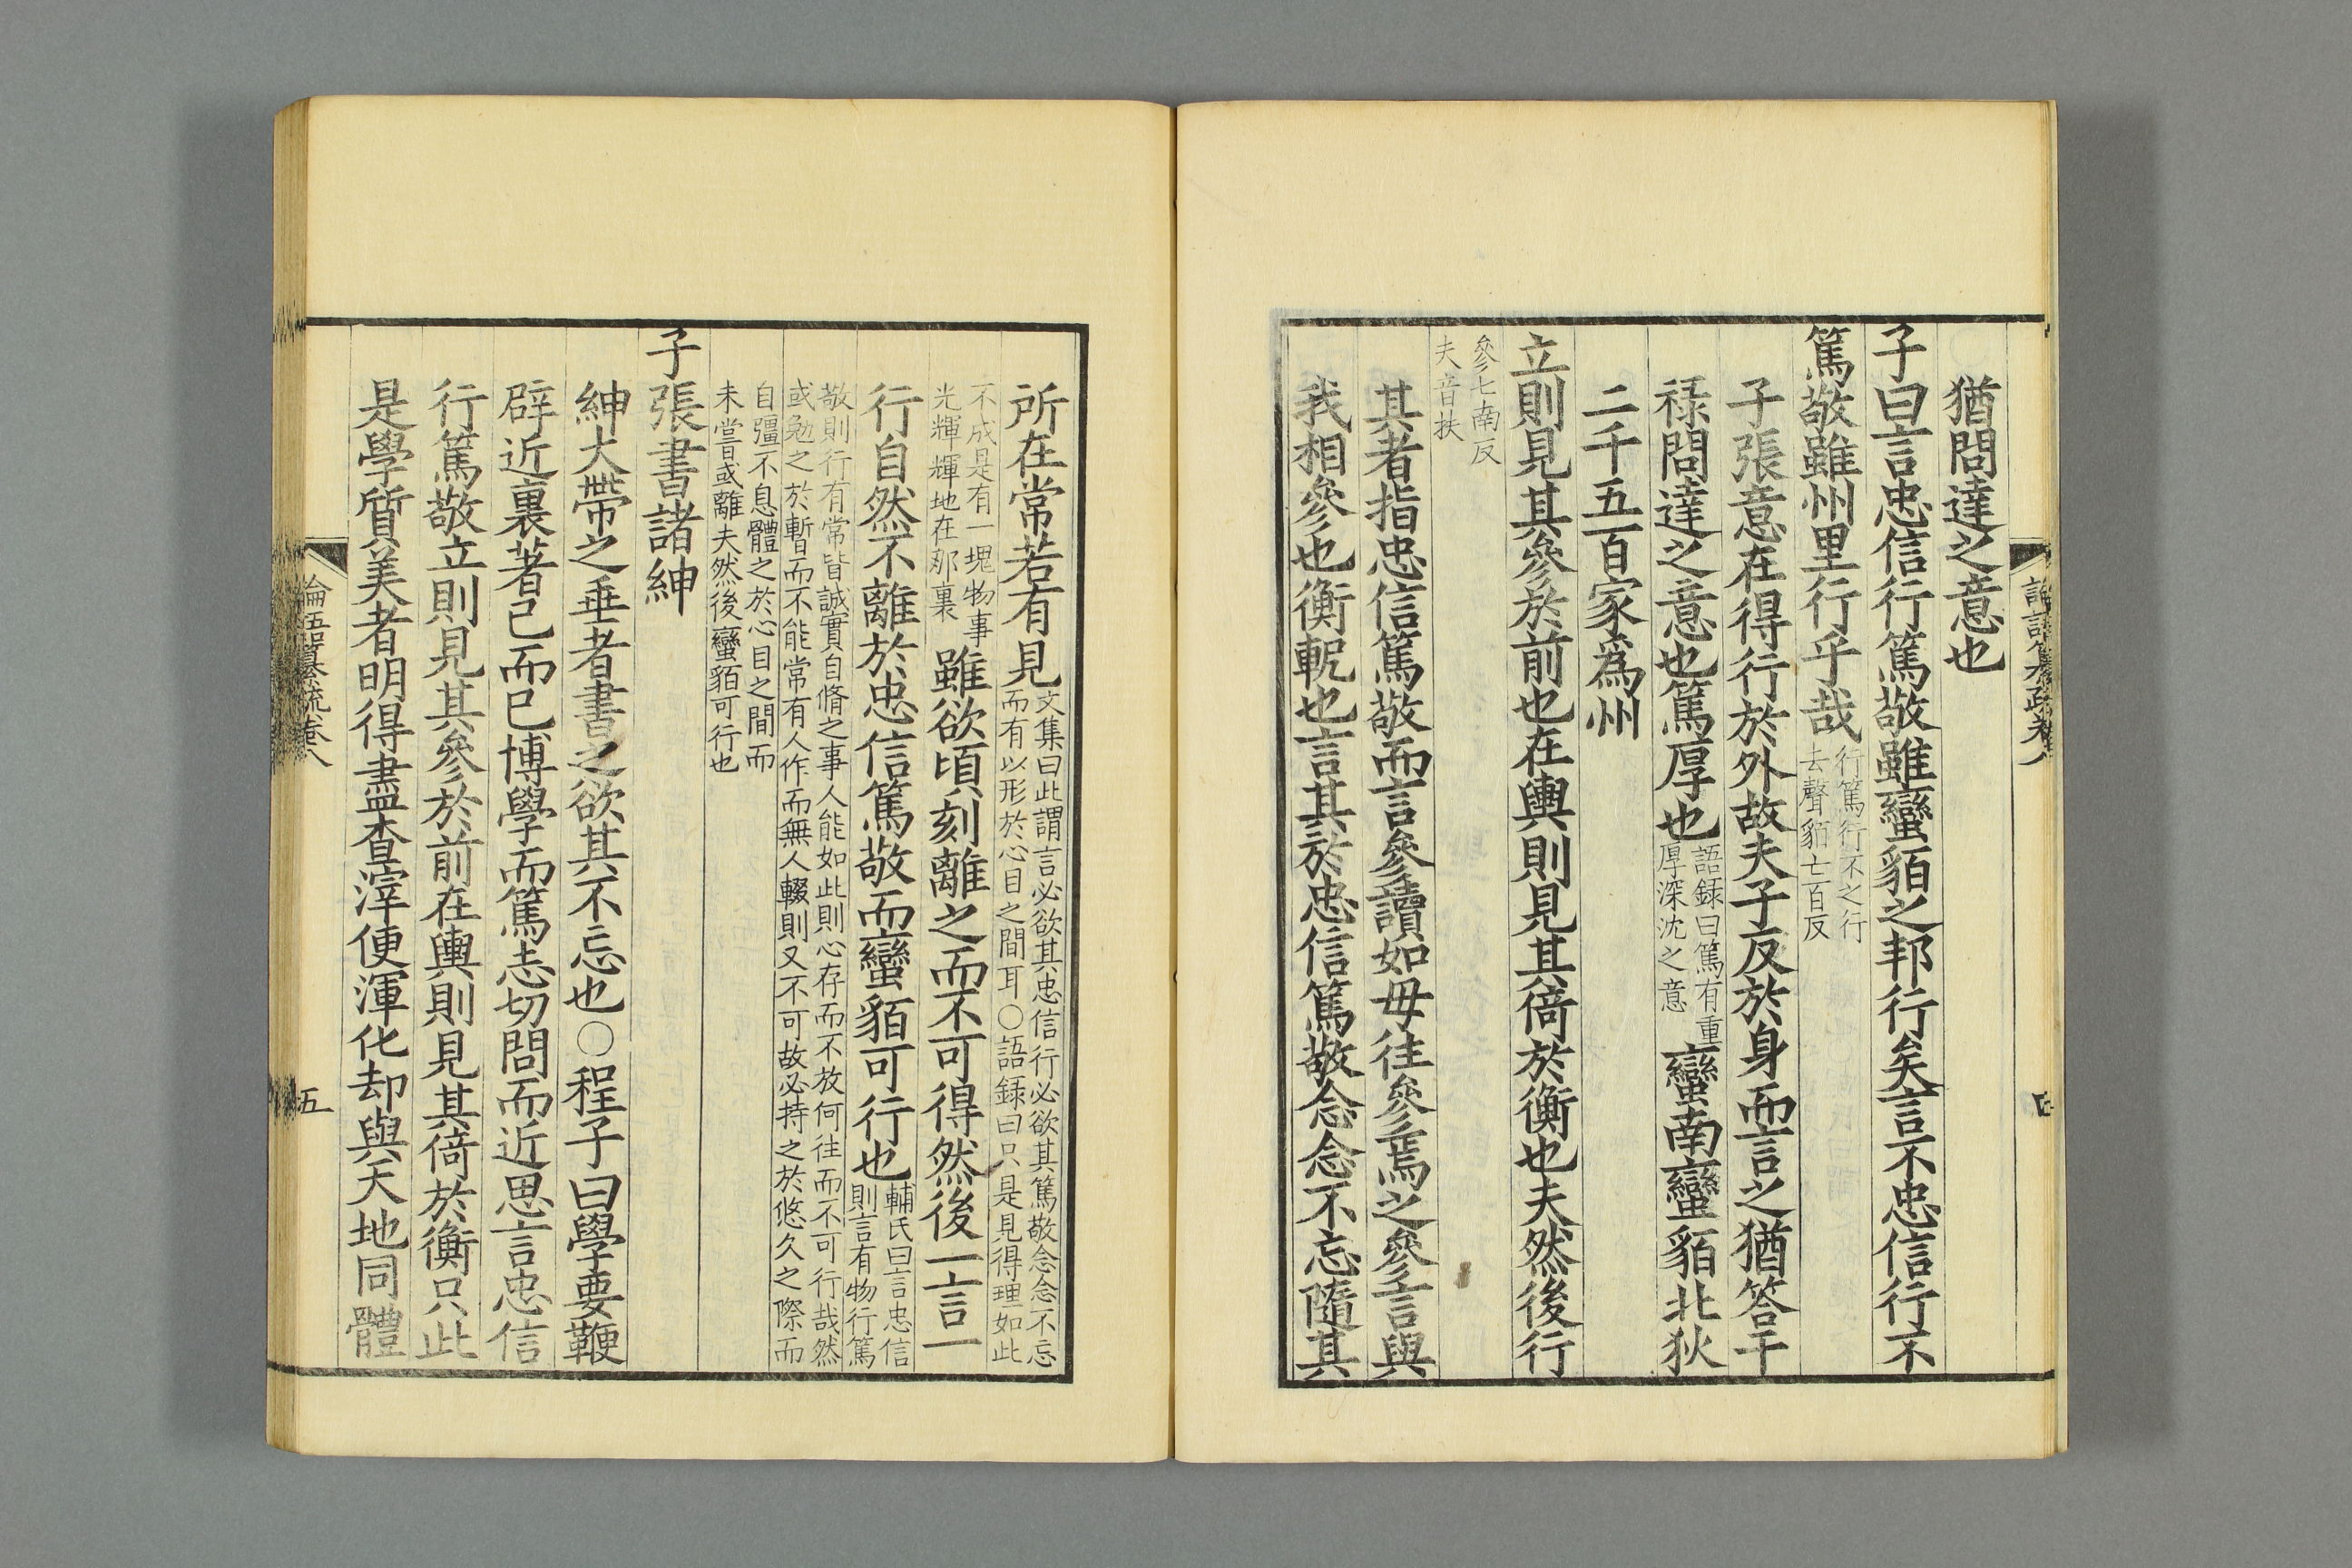 猶問達之意也
子曰言忠信行篤敬雖蠻貊之邦行矣言不忠信行不
篤敬雖州里行乎哉
行篤行不之行
去聲貊亡百反
子張意在得行於外故夫子反於身而言之猶答干
祿問達之意也篤厚也
語録曰篤有重
厚深沈之意
蠻南蠻貊北狄
二千五百家爲州
立則見其參於前也在輿則見其倚於衡也夫然後行
參七南反
夫音扶
其者指忠信篤敬而言參讀如毋往參焉之參言與
我相參也衡軛也言其於忠信篤敬念念不忘隨其
所在常若有見
文集曰此謂言必欲其忠信行必欲其篤敬念念不忘
而有以形於心目之間耳○語録曰只是見得理如此
不成是有一塊物事
光輝輝地在那裏
雖欲頃刻離之而不可得然後一言一
行自然不離於忠信篤敬而蠻貊可行也
輔氏曰言忠信
則言有物行篤
敬則行有常皆誠實自脩之事人能如此則心存而不放何往而不可行哉然
或勉之於暫而不能常有人作而無人輟則又不可故必持之於悠久之際而
自彊不息體之於心目之間而
未嘗或離夫然後蠻貊可行也
子張書諸紳
紳大帶之垂者書之欲其不忘也○程子曰學要鞭
辟近裏著己而已博學而篤志切問而近思言忠信
行篤敬立則見其參於前在輿則見其倚於衡只此
是學質美者明得盡查滓便渾化却與天地同體
論語纂疏卷八
五